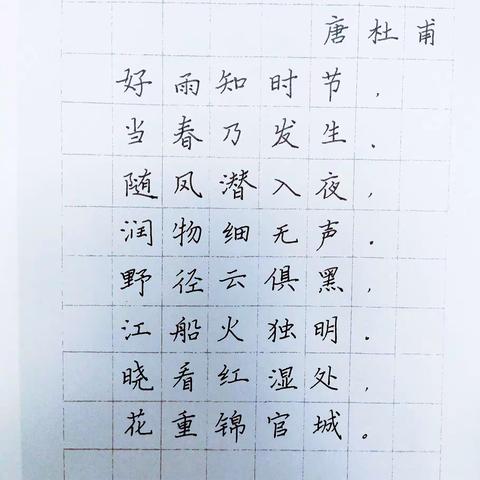 唐杜甫
好雨知时节,
当春乃发生.
随凤潜入夜,
润物细无声.
野径云俱黑,
江船火独明.
晓看红湿处,
花重锦官城。